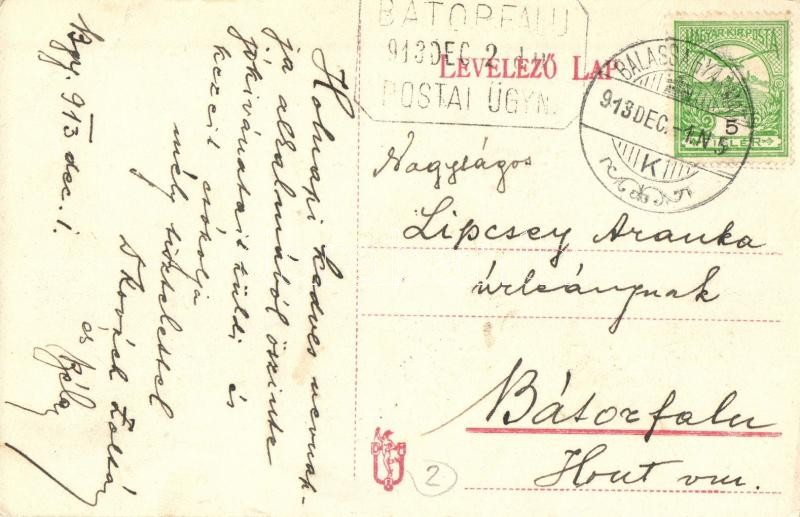 BÁTORFALU
913 DEC 2
POSTAI ÜGYN.
LEVELEZŐ LAP
BALASSAGYARMAT
913 DEC. -1. N 5
K
MAGYAR KIR. POSTA
5
FILLÉR
Nagyságos
Lipcsey Aranka
úrleánynak
Bátorfalu
Hont vm.
2
Bgy. 913 dec. 1.
Holnapi kedves nevenap-
ja alkalmából őszinte
jókivánatait küldi és
kezeit csókolja
mély tisztelettel
Dkovách Zoltán
és Béla